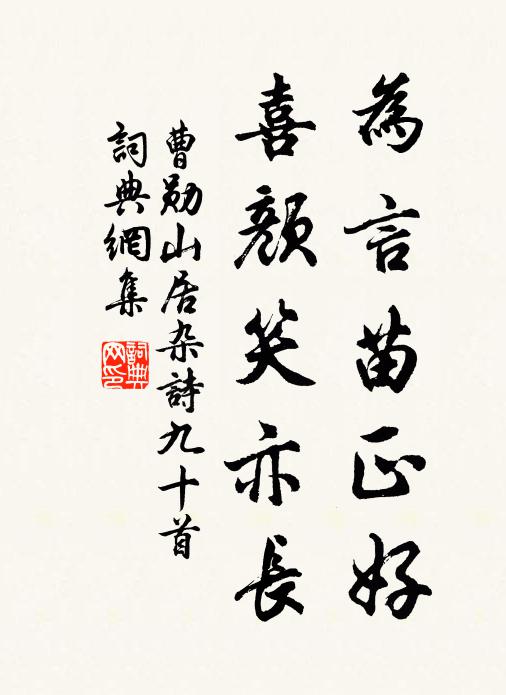 為言苗正好
喜顏笑亦長
曹勛山居杂詩九十首
詞典網集
詞典网印